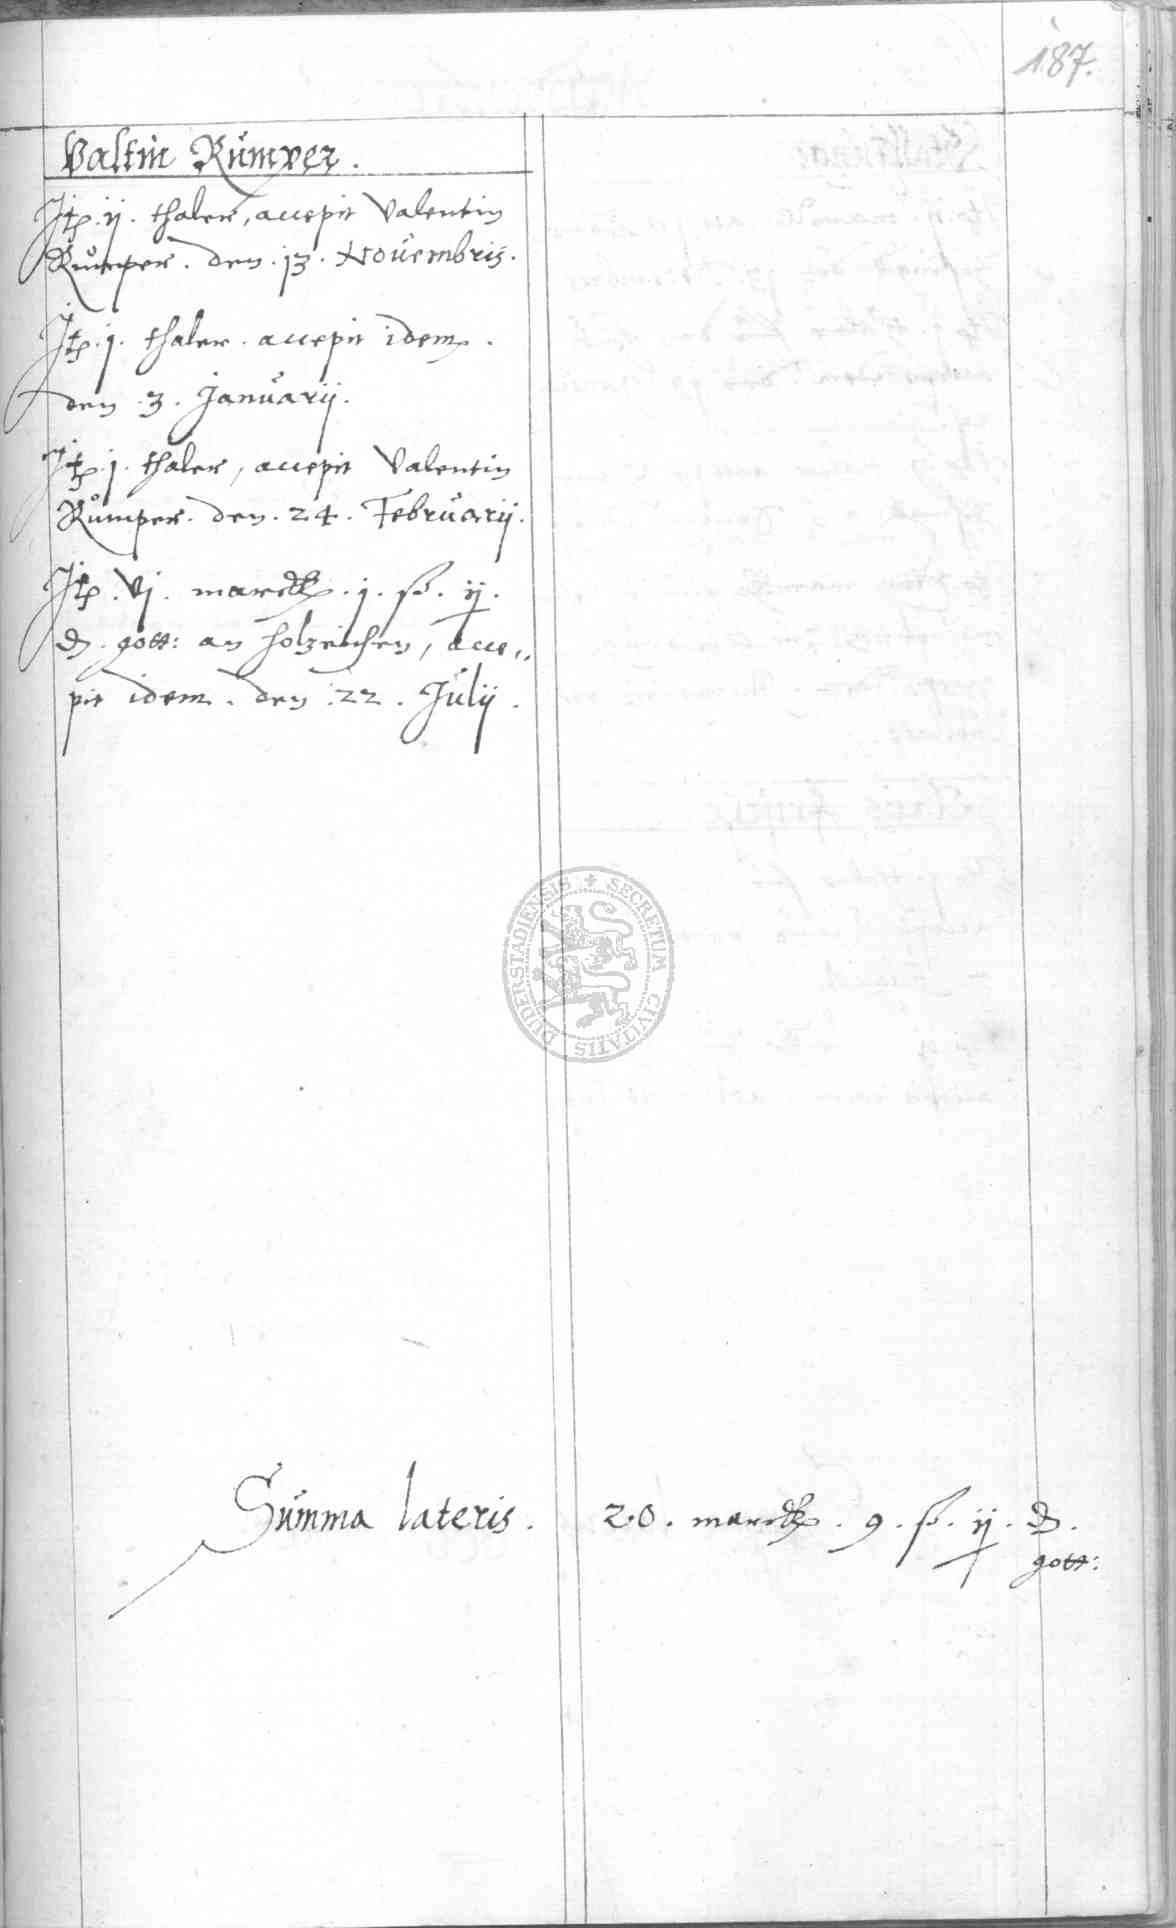 187.
Valtin Rumper.
Itẽ. ij. thaler, accepit Valentin
Rümper. den. 13. Novembris.
Itẽ. j. thaler. accepit idem.
den. 3. Januarij.
Itẽ. j. thaler, accepit Valentin
Rümper. den. 24. Februarij.
Itẽ. vj. marck. j. ß. ij.
₰. gott: an holzeichen, acce„
pit idem. den. 22. Julij.
DUDERSTADIENSIS + SECRETUM CIVITATIS
Summa lateris. 20. marck. 9. ß. ij. ₰.
gott: